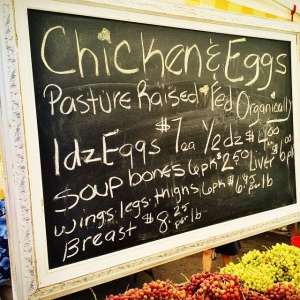 Chicken & Eggs
Pasture Raised Fed Organically
1dz Eggs $7 ea 1/2 dz $4.00
Soup bones 6 ph $2.50 Liver $
wings, legs, thighs, 6 ph $6.45 per lb
Breast $8.25 per lb